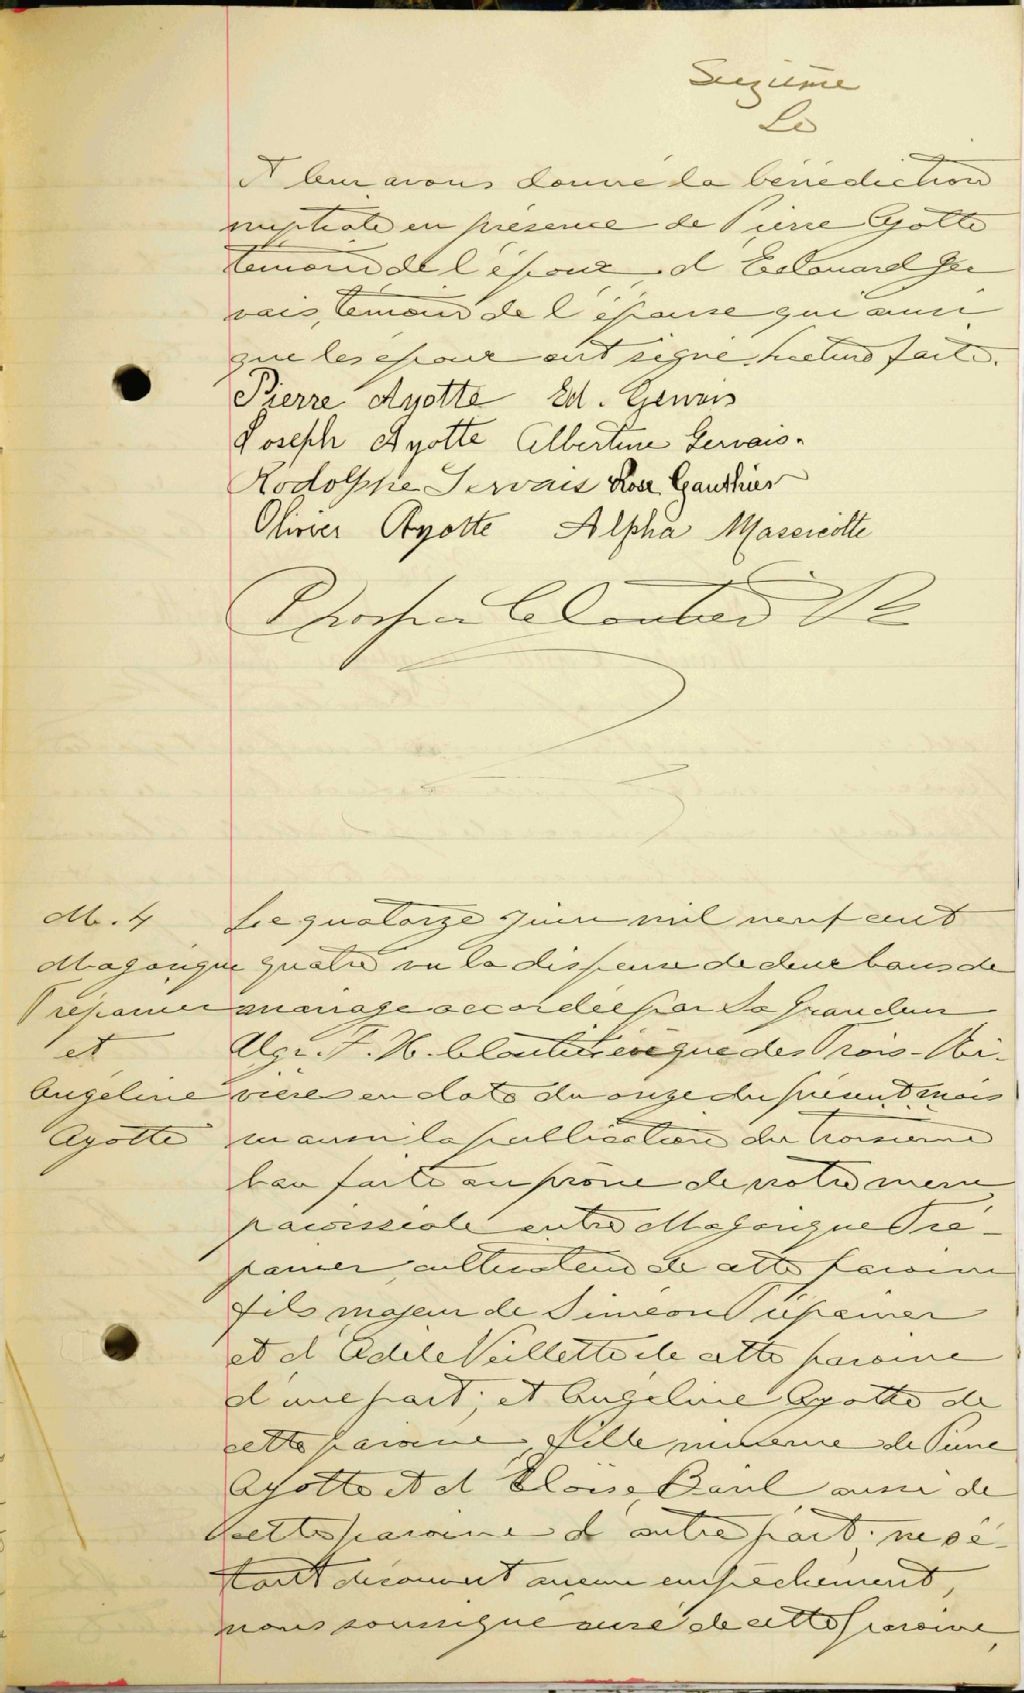 Seizième
Le
Et leur avons donné la bénédiction
nuptiale en présence de Pierre Ayotte
témoin de l'époux, d'Edouard Ger
vais, témoin de l'épouse qui ainsi
que les époux ont signé. Lecture faite.
Pierre Ayotte Ed. Gervais
Joseph Ayotte Albertine Gervais.
Rodolphe Gervais Rose Gauthier
Olivier Ayotte Alpha Massicotte
Prosper Cloutier Ptre
M. 4
Majorique
Trépanier
et
Angéline
Ayotte
Le quatorze juin mil neuf cent
quatre vu la dispense de deux bans de
mariage accordée par Sa Grandeur
Mgr. F. X. Cloutier évêque des Trois-Ri-
vières en date du onze du présent mois
vu aussi la publication du troisième
ban faite au prône de notre messe
paroissiale entre Majorique Tré-
panier, cultivateur de cette paroisse
fils majeur de Siméon Trépanier
et d'Adèle Veillette de cette paroisse
d'une part; et Angéline Ayotte de
cette paroisse, fille mineure de Pierre
Ayotte et d'Éloïse Baril aussi de
cette paroisse d'autre part; ne s'é-
tant découvert aucun empêchement,
nous soussigné curé de cette paroisse,